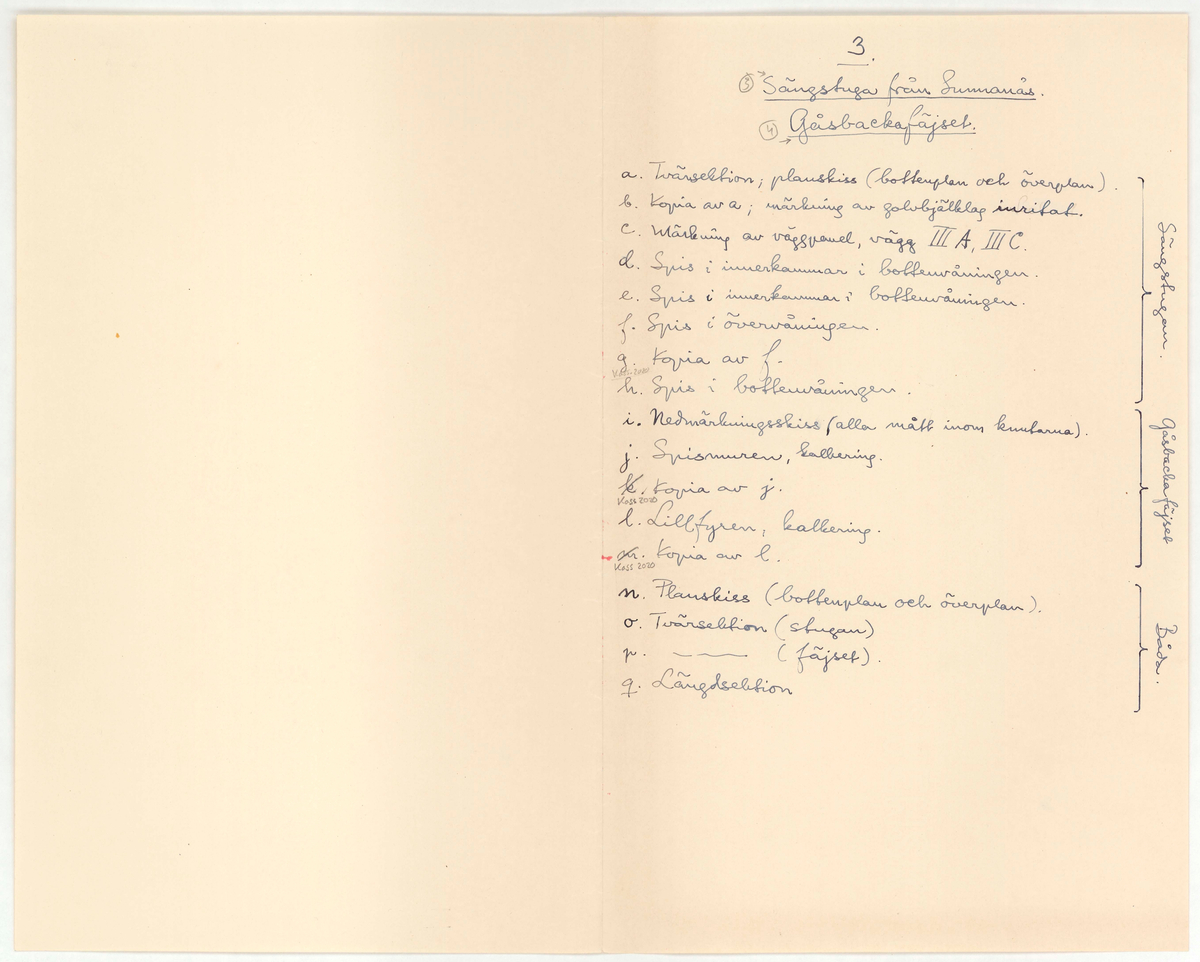 3.
③ → Sängstuga från Sunnanås.
④ → Gåsbackafäjset.
a. Tvärsektion; planskiss (bottenplan och överplan).
b. Kopia av a; märkning av golvbjälklag inritat.
c. Märkning av väggpanel, vägg III A, III C.
d. Spis i innerkammar i bottenvåningen.
e. Spis i innerkammar i bottenvåningen.
f. Spis i övervåningen.
g. Kopia av f.
Kass. 2020
h. Spis i bottenvåningen.
i. Nedmärkningsskiss (alla mått inom knutarna).
j. Spismuren, kalkering.
k. Kopia av j.
Kass 2020
l. Lillfyren, kalkering.
m. Kopia av l.
Kass 2020
n. Planskiss (bottenplan och överplan).
o. Tvärsektion (stugan)
p. —~— (fäjset).
q. Längdsektion
Sängstugan.
Gåsbackafäjset
Båda.